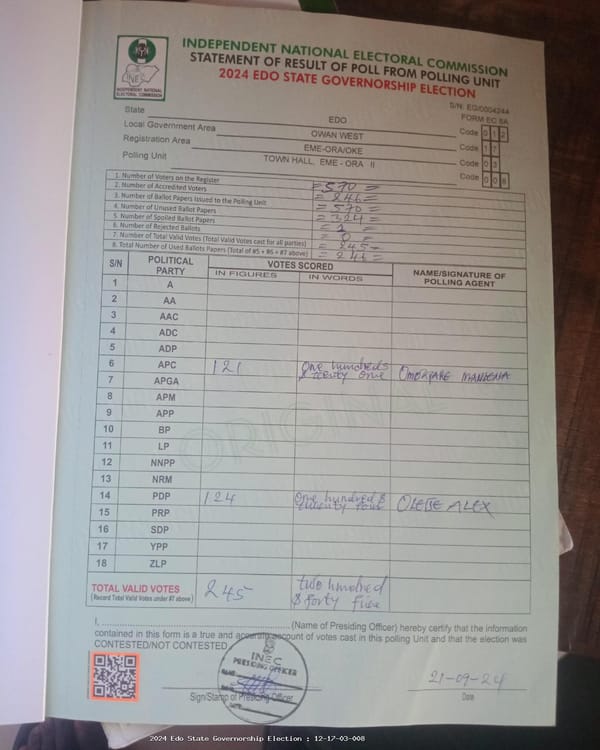 INDEPENDENT NATIONAL ELECTORAL COMMISSION
STATEMENT OF RESULT OF POLL FROM POLLING UNIT
2024 EDO STATE GOVERNORSHIP ELECTION
INEC
INDEPENDENT NATIONAL ELECTORAL COMMISSION
S/N: EG/0004244
FORM EC 8A
State EDO Code 0 1 2
Local Government Area OWAN WEST Code 1 7
Registration Area EME-ORA/OKE Code 0 3
Polling Unit TOWN HALL, EME - ORA II Code 0 0 8
1. Number of Voters on the Register = 570 =
2. Number of Accredited Voters = 246 =
3. Number of Ballot Papers Issued to the Polling Unit = 570 =
4. Number of Unused Ballot Papers = 324 =
5. Number of Spoiled Ballot Papers
6. Number of Rejected Ballots = 0 =
7. Number of Total Valid Votes (Total Valid Votes cast for all parties) = 245 =
8. Total Number of Used Ballots Papers (Total of #5 + #6 + #7 above) = 246 =
S/N POLITICAL PARTY VOTES SCORED NAME/SIGNATURE OF POLLING AGENT
IN FIGURES IN WORDS
1 A
2 AA
3 AAC
4 ADC
5 ADP
6 APC 121 One hundreds & twenty one
7 APGA
8 APM
9 APP
10 BP
11 LP
12 NNPP
13 NRM
14 PDP 124 One hundred & twenty four ALEX
15 PRP
16 SDP
17 YPP
18 ZLP
ORIGINAL
TOTAL VALID VOTES 245 two hundred & forty five
(Record Total Valid Votes under #7 above)
I, (Name of Presiding Officer) hereby certify that the information
contained in this form is a true and accurate account of votes cast in this polling Unit and that the election was
CONTESTED/NOT CONTESTED
INEC
PRESIDING OFFICER
NAME
SIGN
DATE
21-09-24
Sign/Stamp of Presiding Officer Date
2024 Edo State Governorship Election : 12-17-03-008